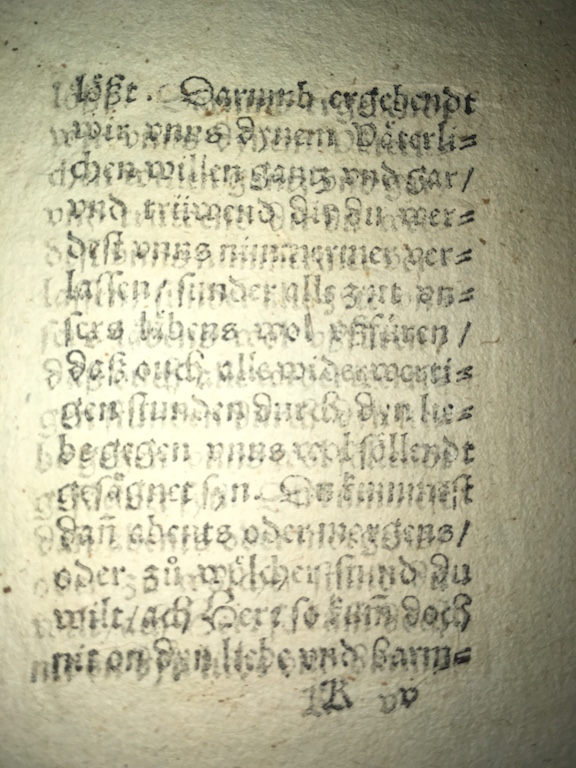 löst. Darumb ergebendt
wir vnns dynem Väterli=
chen willen gantz vnd gar/
vnd trüwend dir/ du wer=
dest vnns nimmermer ver=
lassen/ sunder alle zyt vn=
sers läbens wol vßfüren/
daß ouch alle widerwerti=
gen stunden durch dyn lie=
be gegen vnns wol söllendt
gesägnet syn. Du kummest
dañ abents oder morgens/
oder zů wölcher stund du
wilt/ ach Herr so kum̃ doch
nit on dyn liebe vnd barm=
K v